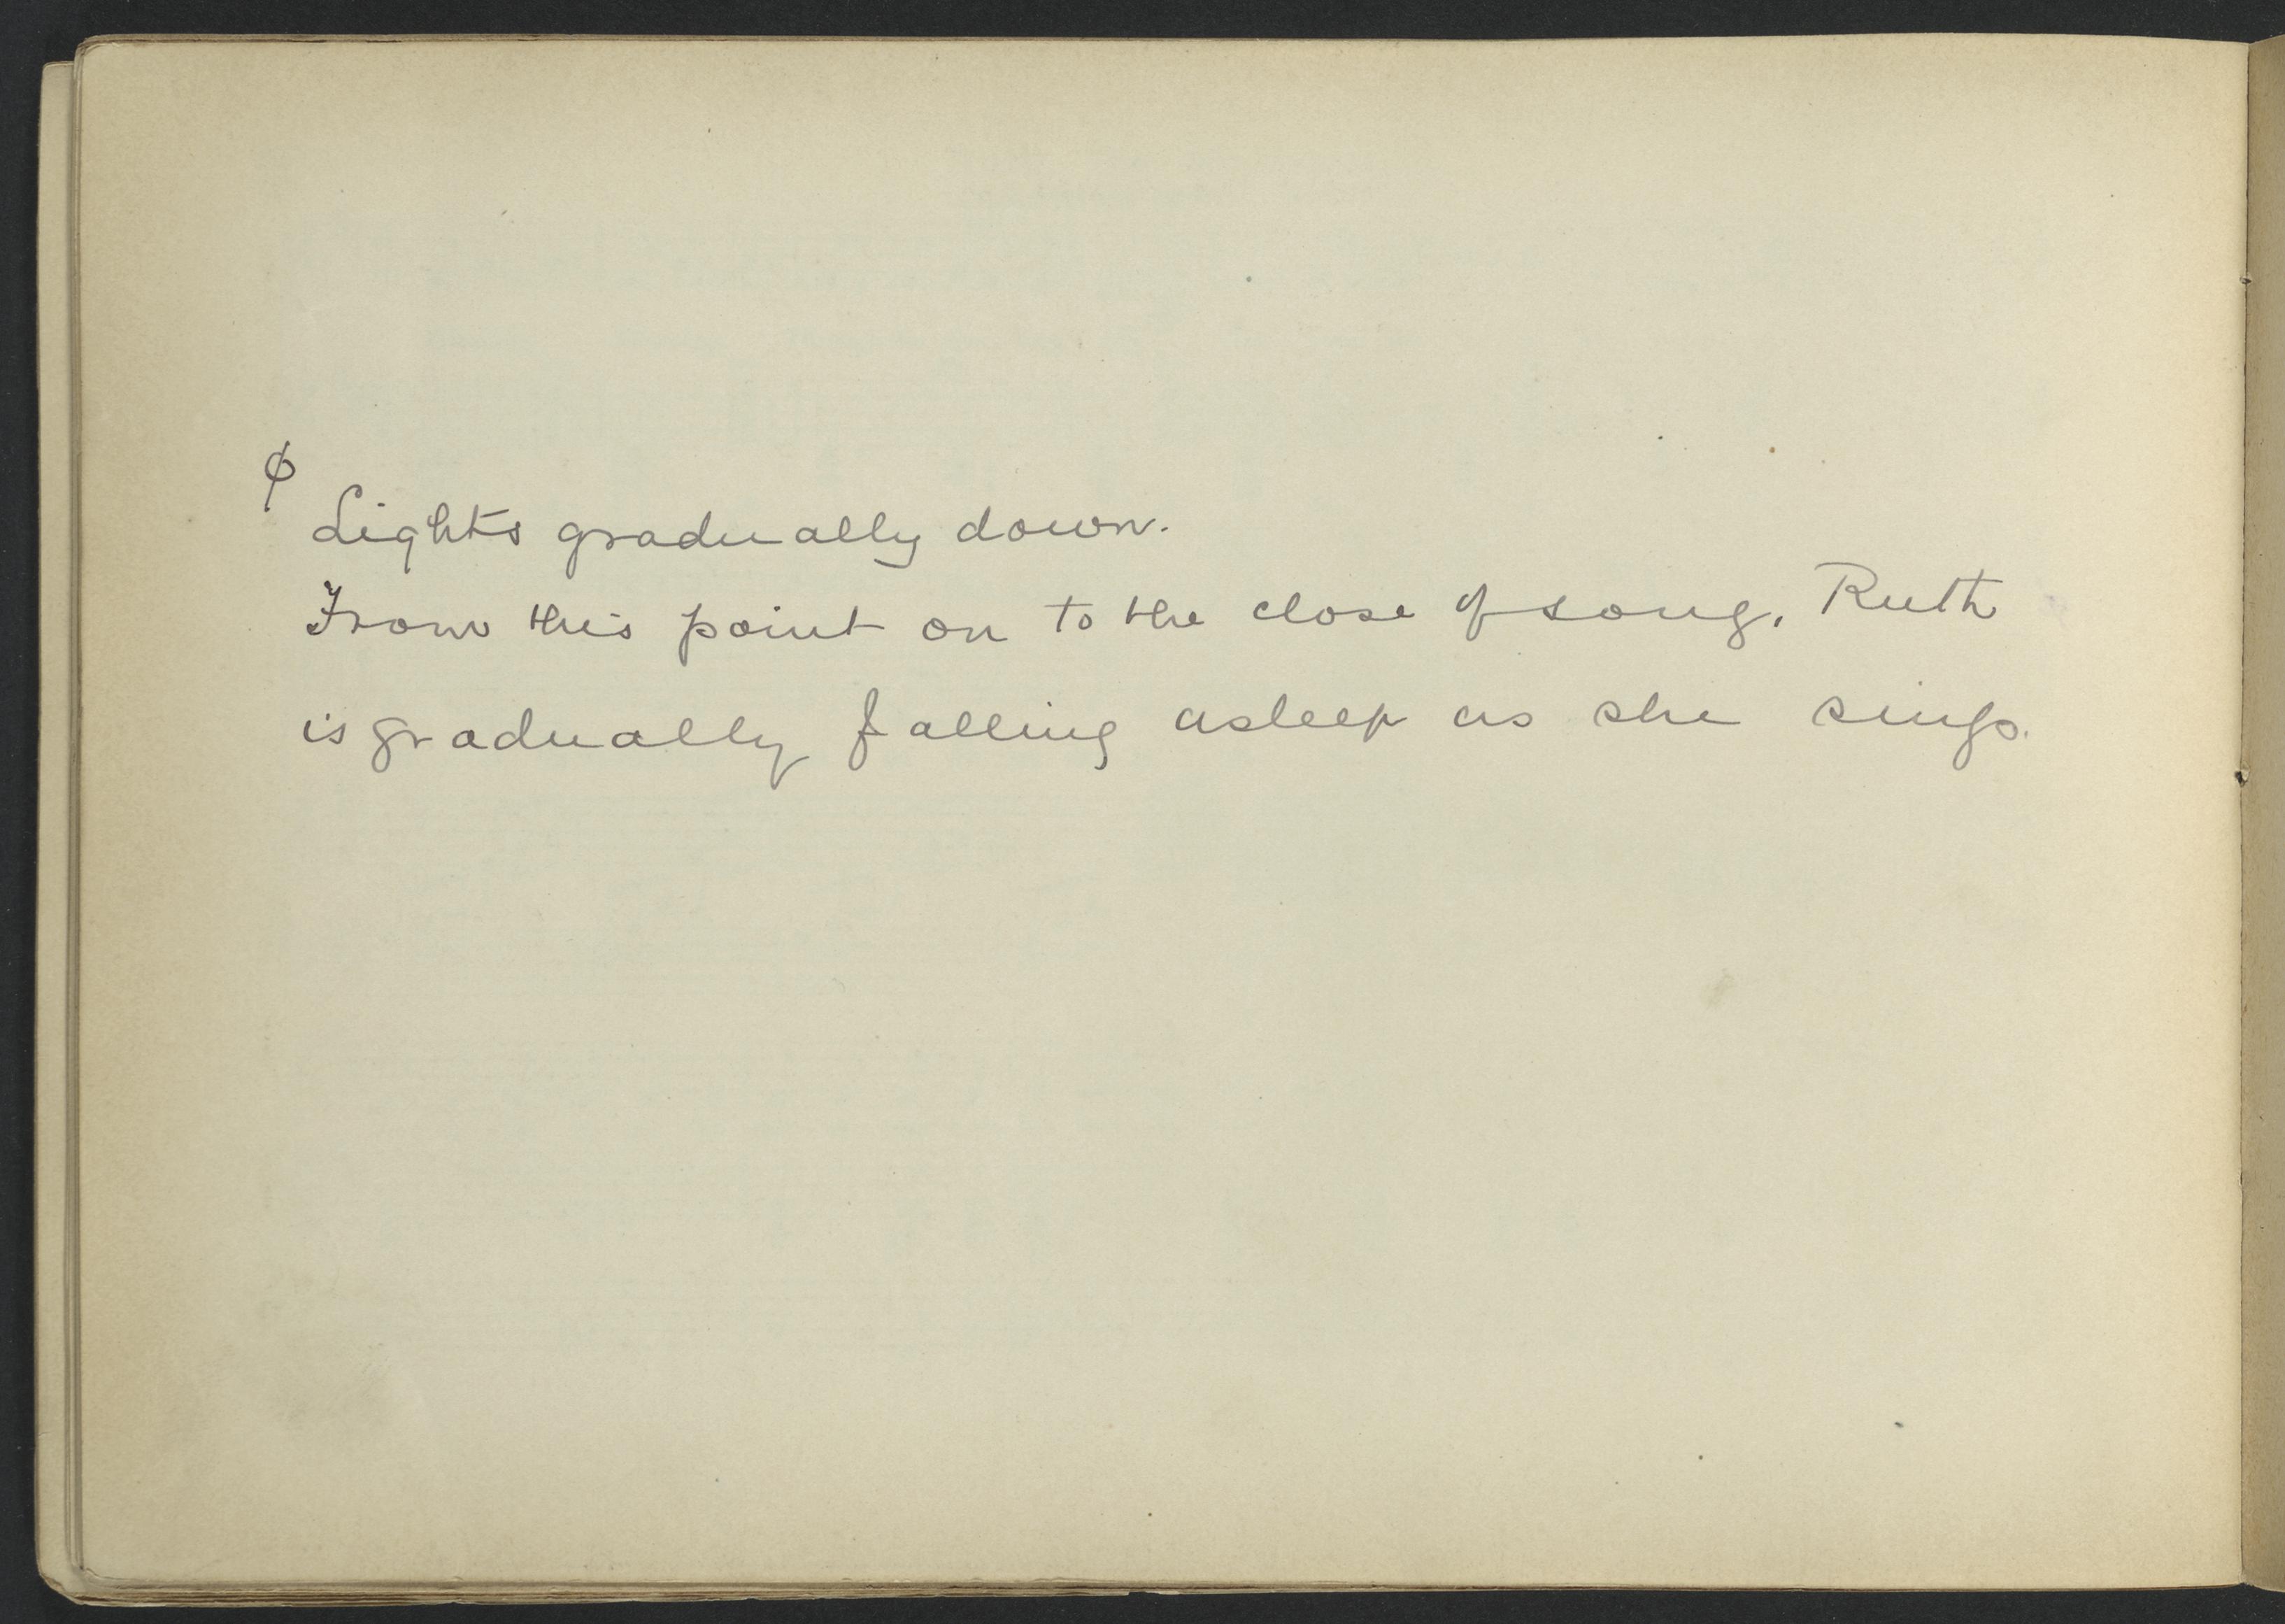 φ
Lights gradually down.
From this point on to the close of song, Ruth
is gradually falling asleep as she sings.